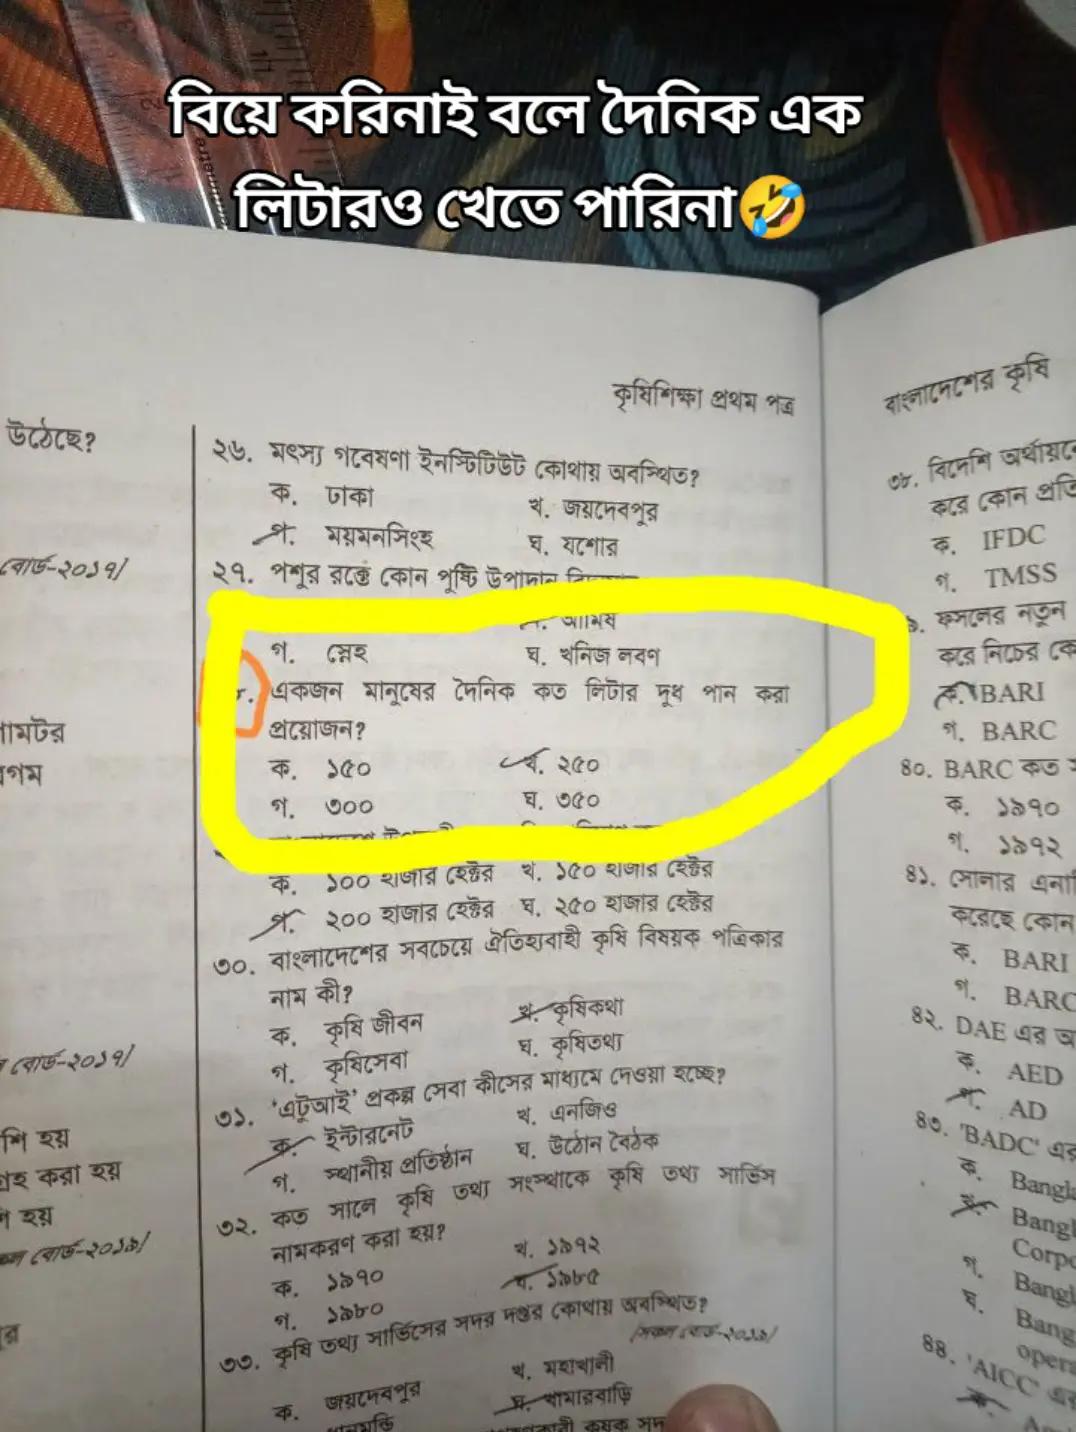 বিয়ে করিনাই বলে দৈনিক এক
লিটারও খেতে পারিনা🤣
কৃষিশিক্ষা প্রথম পত্র
উঠেছে?
বোর্ড-২০১৭/
গামটর
গম
বোর্ড-২০১৭/
শি হয়
গ্রহ করা হয়
হয়
বোর্ড-২০১৯/
২৬. মৎস্য গবেষণা ইনস্টিটিউট কোথায় অবস্থিত?
ক. ঢাকা
খ. জয়দেবপুর
গ. ময়মনসিংহ
ঘ. যশোর
২৭. পশুর রক্তে কোন পুষ্টি উপাদান
আমিষ
গ. স্নেহ
ঘ. খনিজ লবণ
৮. একজন মানুষের দৈনিক কত লিটার দুধ পান করা
প্রয়োজন?
ক. ১৫০
খ. ২৫০
গ. ৩০০
ঘ. ৩৫০
ক. ১০০ হাজার হেক্টর খ. ১৫০ হাজার হেক্টর
গ. ২০০ হাজার হেক্টর ঘ. ২৫০ হাজার হেক্টর
৩০. বাংলাদেশের সবচেয়ে ঐতিহ্যবাহী কৃষি বিষয়ক পত্রিকার
নাম কী?
ক. কৃষি জীবন
খ. কৃষিকথা
গ. কৃষিসেবা
ঘ. কৃষিতথ্য
৩১. 'এটুআই' প্রকল্প সেবা কীসের মাধ্যমে দেওয়া হচ্ছে?
ক. ইন্টারনেট
খ. এনজিও
গ. স্থানীয় প্রতিষ্ঠান
ঘ. উঠোন বৈঠক
৩২. কত সালে কৃষি তথ্য সংস্থাকে কৃষি তথ্য সার্ভিস
নামকরণ করা হয়?
ক. ১৯৭০
খ. ১৯৭২
গ. ১৯৮০
ঘ. ১৯৮৫
৩৩. কৃষি তথ্য সার্ভিসের সদর দপ্তর কোথায় অবস্থিত?
/সকল বোর্ড-২০১৯/
ক. জয়দেবপুর
খ. মহাখালী
ঘ. খামারবাড়ি
কৃষক
বাংলাদেশের কৃষি
৩৮. বিদেশি অর্থায়নে
করে কোন প্রতি
ক. IFDC
গ. TMSS
৯. ফসলের নতুন
করে নিচের কো
ক. BARI
গ. BARC
৪০. BARC কত
ক. ১৯৭০
গ. ১৯৭২
৪১. সোনার এনা
করেছে কোন
ক. BARI
গ. BARC
৪২. DAE এর অ
ক. AED
গ. AD
৪৩. 'BADC' এর
ক. Bangla
খ. Bangl
Corpo
গ. Bangl
ঘ. Bang
opera
৪৪. 'AICC' এর
ক.